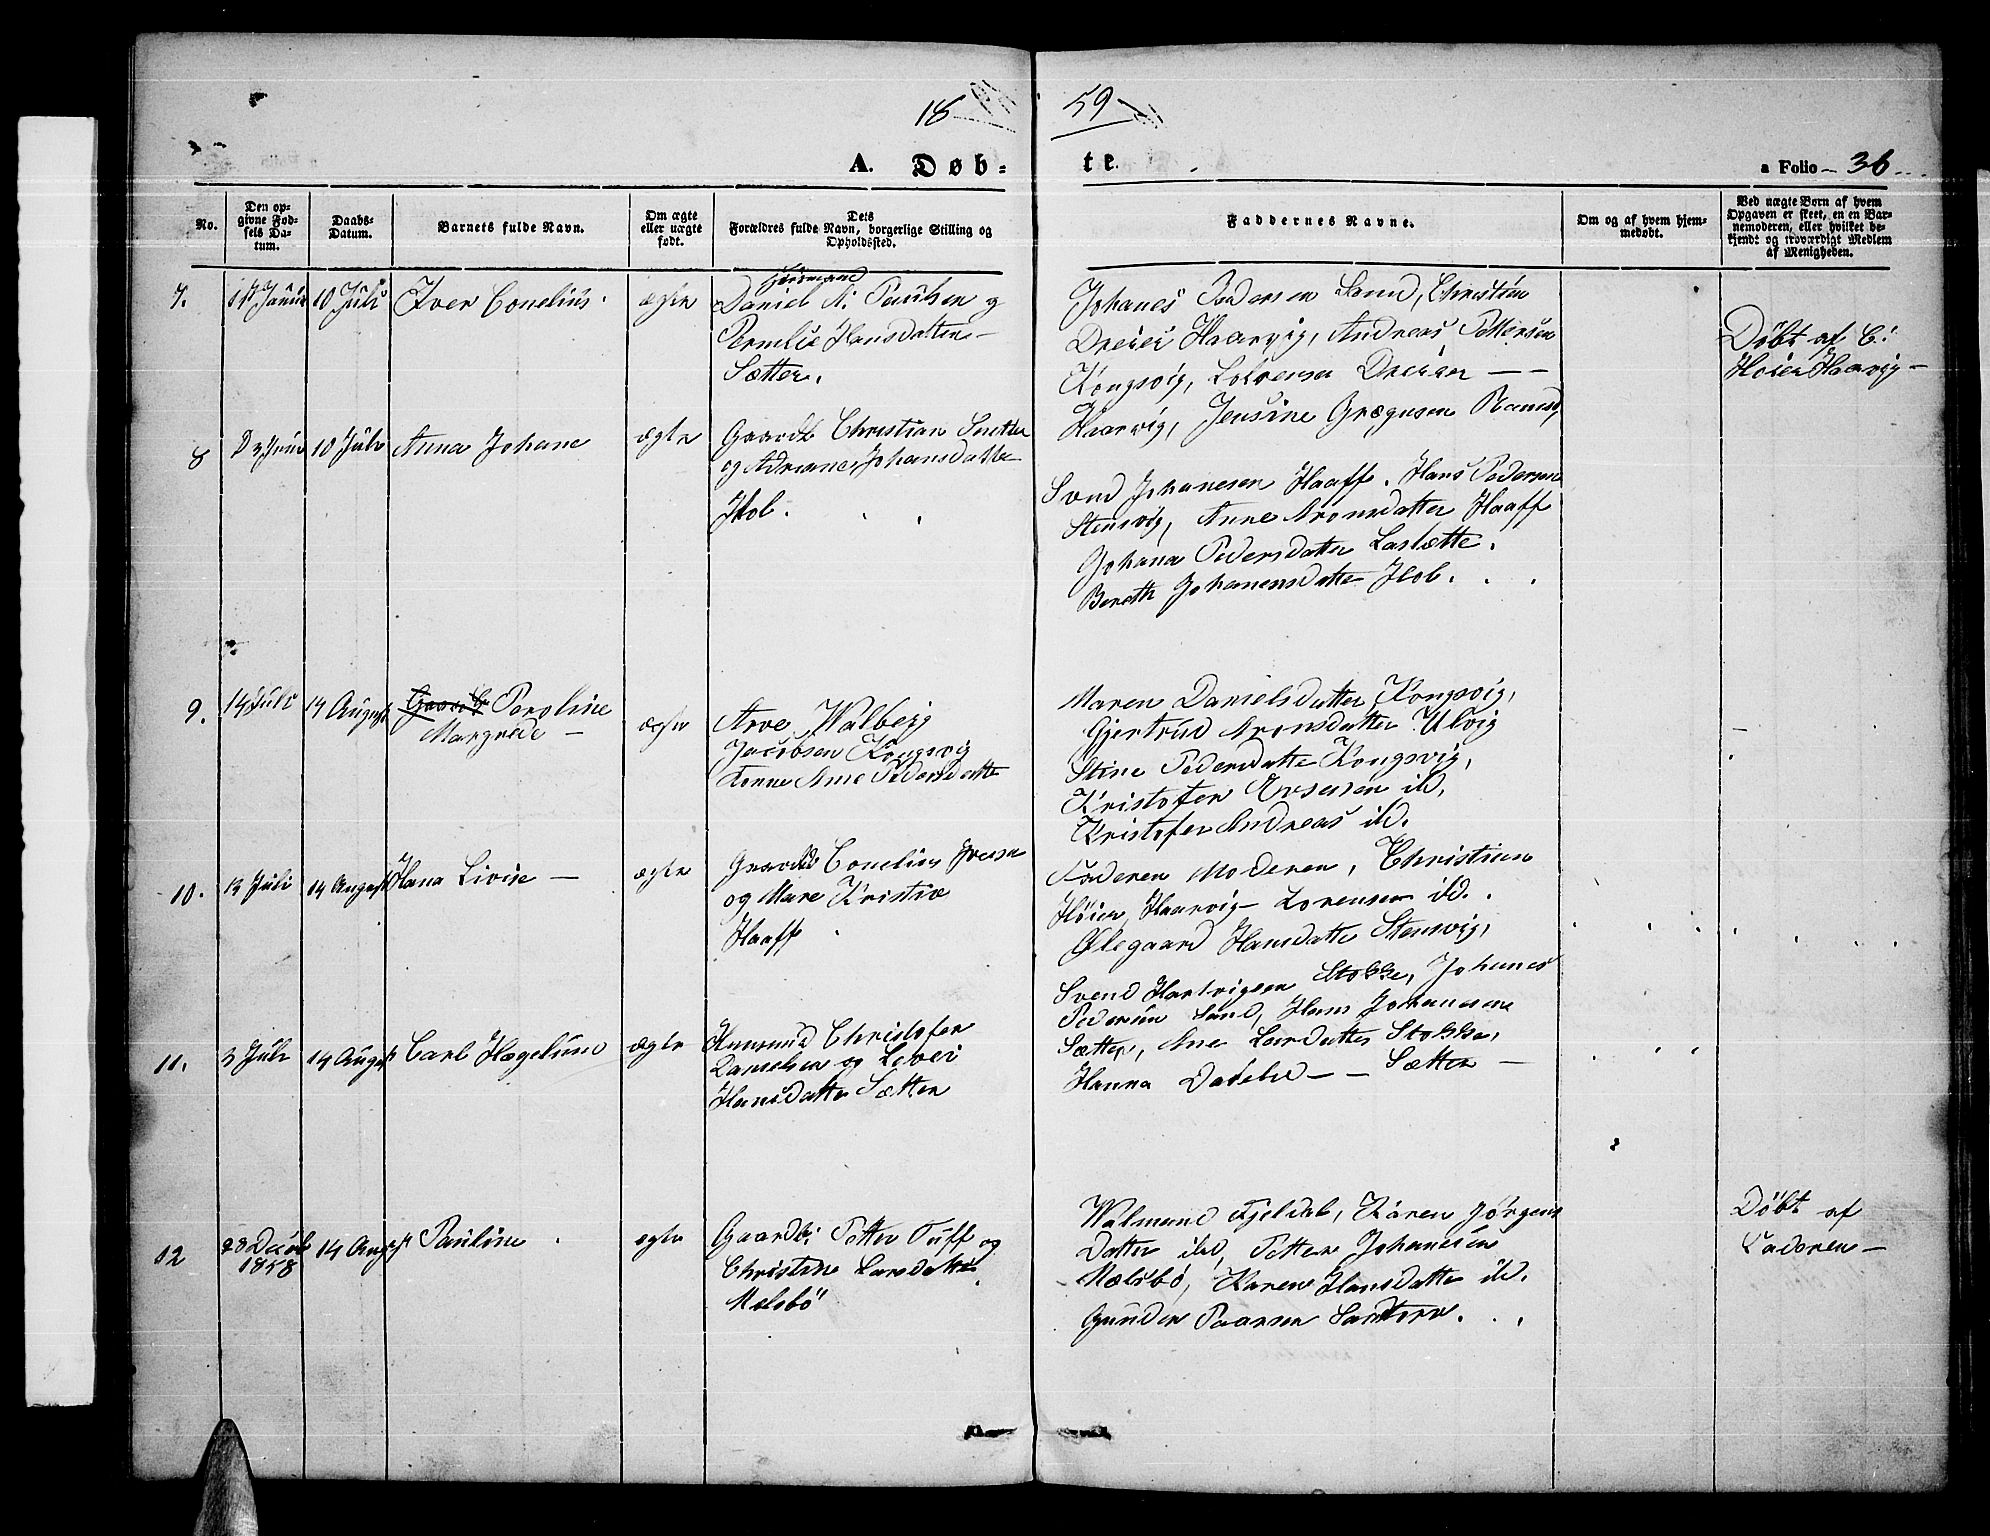 18 59
A. Døb- te.
a Folio 36
No.
Den op-
givne Fød-
sels Da-
tum.
Daabs-
Datum.
Barnets fulde Navn.
Om ægte
eller uægte
født.
Dets
Forældres fulde Navn, borgerlige Stilling og
Opholdssted.
Faddernes Navne.
Om og af hvem hjem-
medøbt.
Ved uægte Børn af hvem
Opgaven er skeet, en en Bar-
nemoderen, eller hvilket be-
kjendt og troværdigt Medlem
af Menigheden.
7. 10 Juli Iver Conelius. ægte
Huusmand
Daniel A: Paulsen og
Pernelie Hansdatter
Sætter.
Johanes Pedersen Sand, Christian
Dreier Haarvig, Andreas Pettersen
Kongsvig, Dreier
Haarvig, Jensine Grægusen
Døbt af C:
Høier Haarvig
8 10 Juli Anna Johane ægte
Gaardb Christian
og Adriane Johansdatter
Hol.
Svend Johanesen Haaff. Hans Pedersen
Stensvig, Anne Aronsdatter Haaff
Johana Pedersdatter
Bereth Johanensdatter Hol.
9. 14 Juli 14 August Paroline
Margrede
ægte
Arve Walberg
Jacobsen Kongsvig
Konne Ane Pedersdatter
Maren Danielsdatter Kongsvig,
Gjertrud Aronsdatter Ulvig
Stine Pedersdatter Kongsvig,
Kristofer ild,
Kristofer Andreas ild.
10. 13 Juli 14 August Hana Livise ægte
Gaardb Conelius Iversen
og Mare Kristine
Haaff
Faderen Moderen, Christian
Høier, Haarvig Lorensen ild.
Ølegaard Hansdatter Stensvig,
11. 3 Juli 14 August Carl Hægelund ægte
Huusmd Christofer
Danielsen og Lovei
Hansdatter Sætter
Svend Hartvigsen Stokke, Johanes
Pedersen Sand, Hans Johannesen
Sætter, Ane Larsdatter Stokke,
Hanna Sætter
12 28 Decbr
1858
14 August Pauline ægte
Gaardb: Petter Tuff og
Christine Larsdatter
Mælsbö
Walmund Fjeldal, Karen Jørgens
Datter ild, Petter Johanesen
Mælsbö, Karen Hansdatter ild.
Gunder Paarsen
Døbt af
Faderen